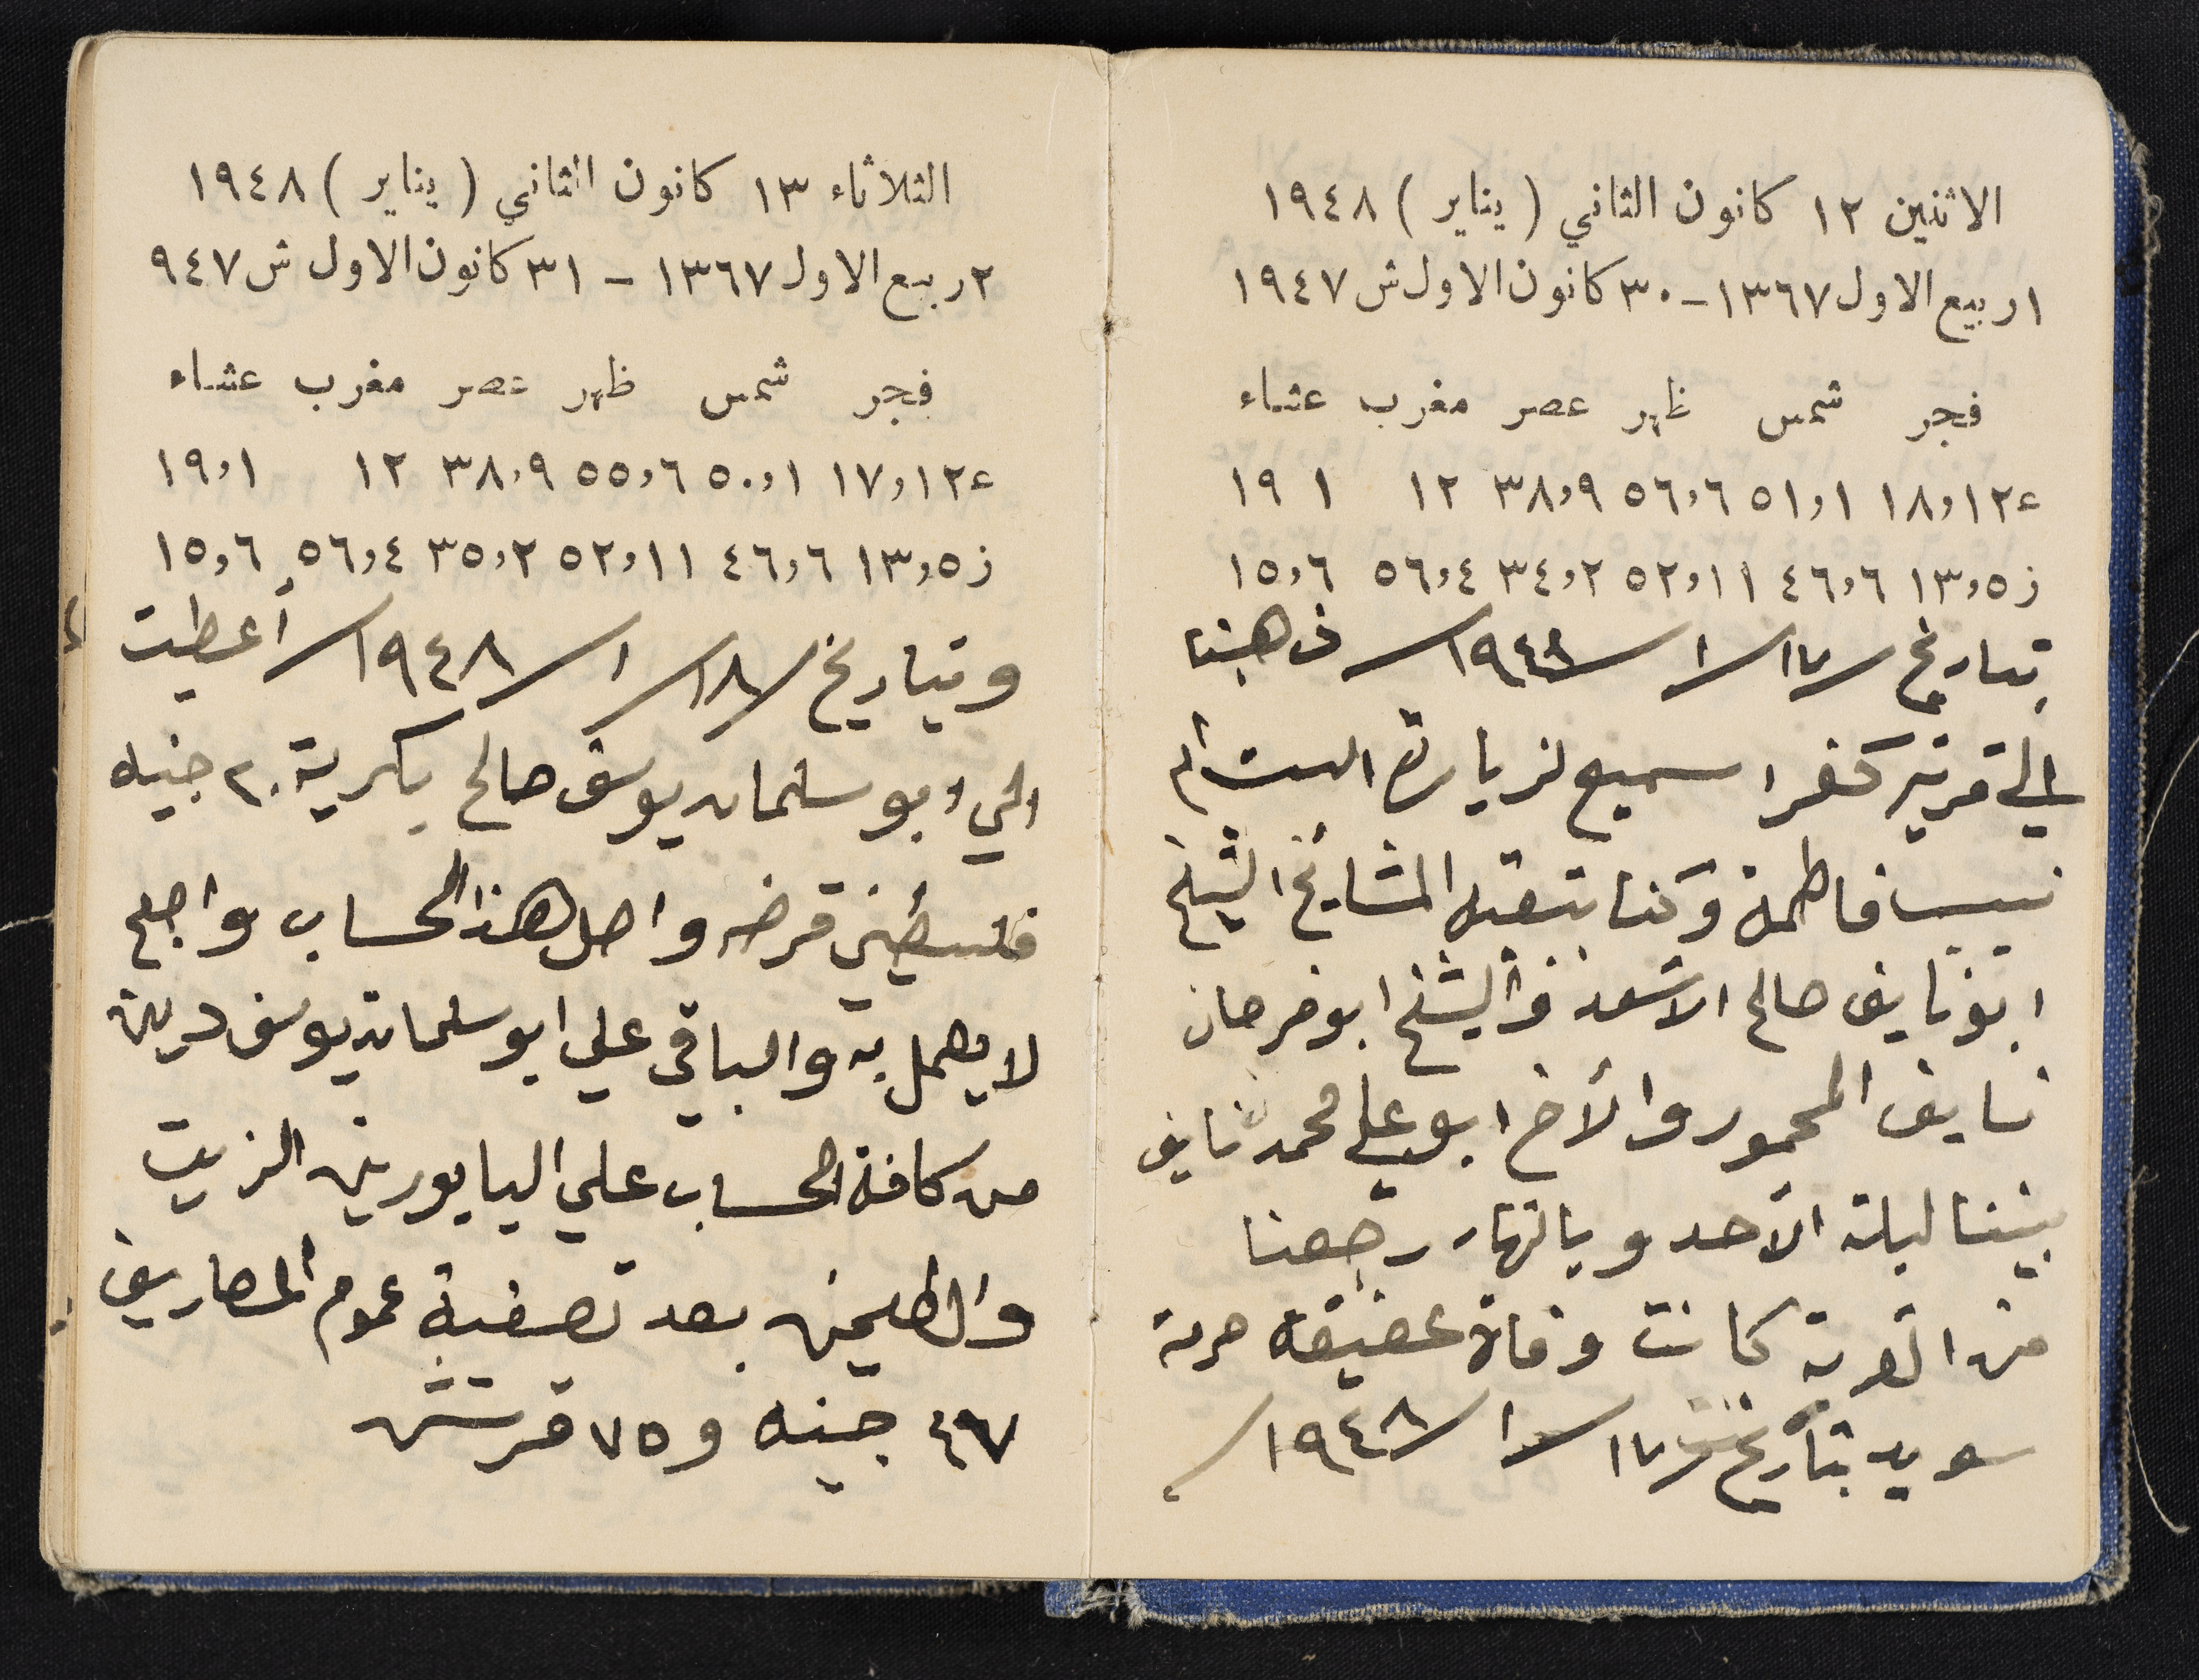 الاثنين ١٢ كانون الثاني ( يناير ) ١٩٤٨
١ ربيع الاول ١٣٦٧ - ٣٠ كانون الاول ش ١٩٤٧
فجر شمس ظهر عصر مغرب عشاء
ع ١٨,١٢ ٥١,١ ٥٦,٦ ٣٨,٩ ١٢ ١ ١٩
ز ١٣,٥ ٤٦,٦ ٥٢,١١ ٣٤,٢ ٥٦,٤ ١٥,٦
بتاريخ ١٧/ ١/ ١٩٤٨/ ذهبنا
الي قرية كفر سميع لزيارة الست ام
نسيب فاطمة وكنا بتقبل المشايخ الشيخ
ابو نايف صالح الاسعد والشيخ ابو فرحان
نايف المحمود والأخ ابو علي محمد نايف
بيتنا ليلة الأحد وبالنهار رجعنا
من القرية كانت وفاة عفيفه حرمة
سويد بتاريخ ١٧/ ١/ ١٩٤٨/
الثلاثاء ١٣ كانون الثاني ( يناير ) ١٩٤٨
٢ ربيع الاول ١٣٦٧ - ٣١ كانون الاول ش ٩٤٧
فجر شمس ظهر عصر مغرب عشاء
ع ١٧,١٢ ٥٠,١ ٥٥,٦ ٣٨,٩ ١٢ ١٩,١
ز ١٣,٥ ٤٦,٦ ٥٢,١١ ٣٥,٢ ٥٦,٤ ١٥,٦
وبتاريخ ١٨/ ١/ ١٩٤٨/ أعطيت
الي ابو سلمان يوسف صالح بكرية ٢٠ جنيه
فلسطيني قرضه واصل هذا الحساب واجع
لا يعمل به والباقي علي ابو سلمان يوسف دين
من كافة الحساب علي البابورين الزيت
والطحين بعد تصفية عموم المصاريف
٤٩٧ جنيه و ٧٥ قرش